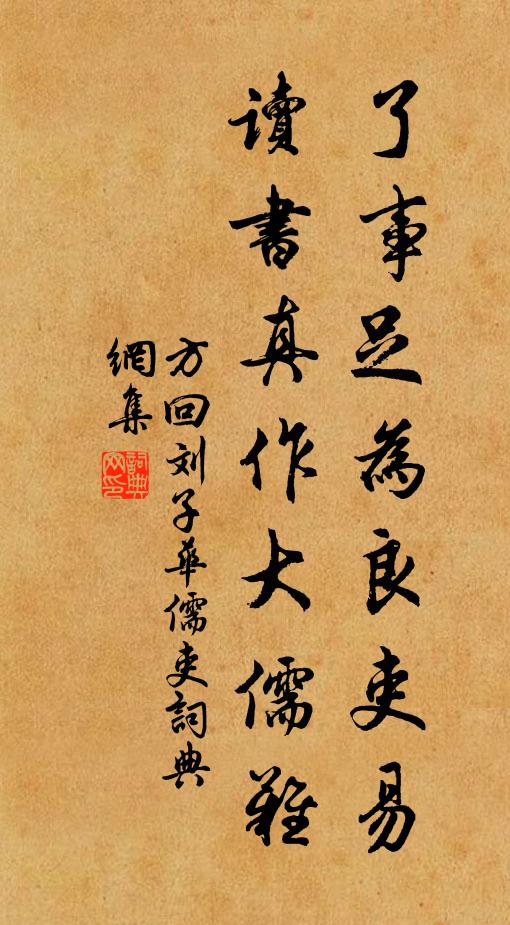 了事足為良吏易
讀書真作大儒難
方回刘子華儒吏詞典
網集
詞典網印